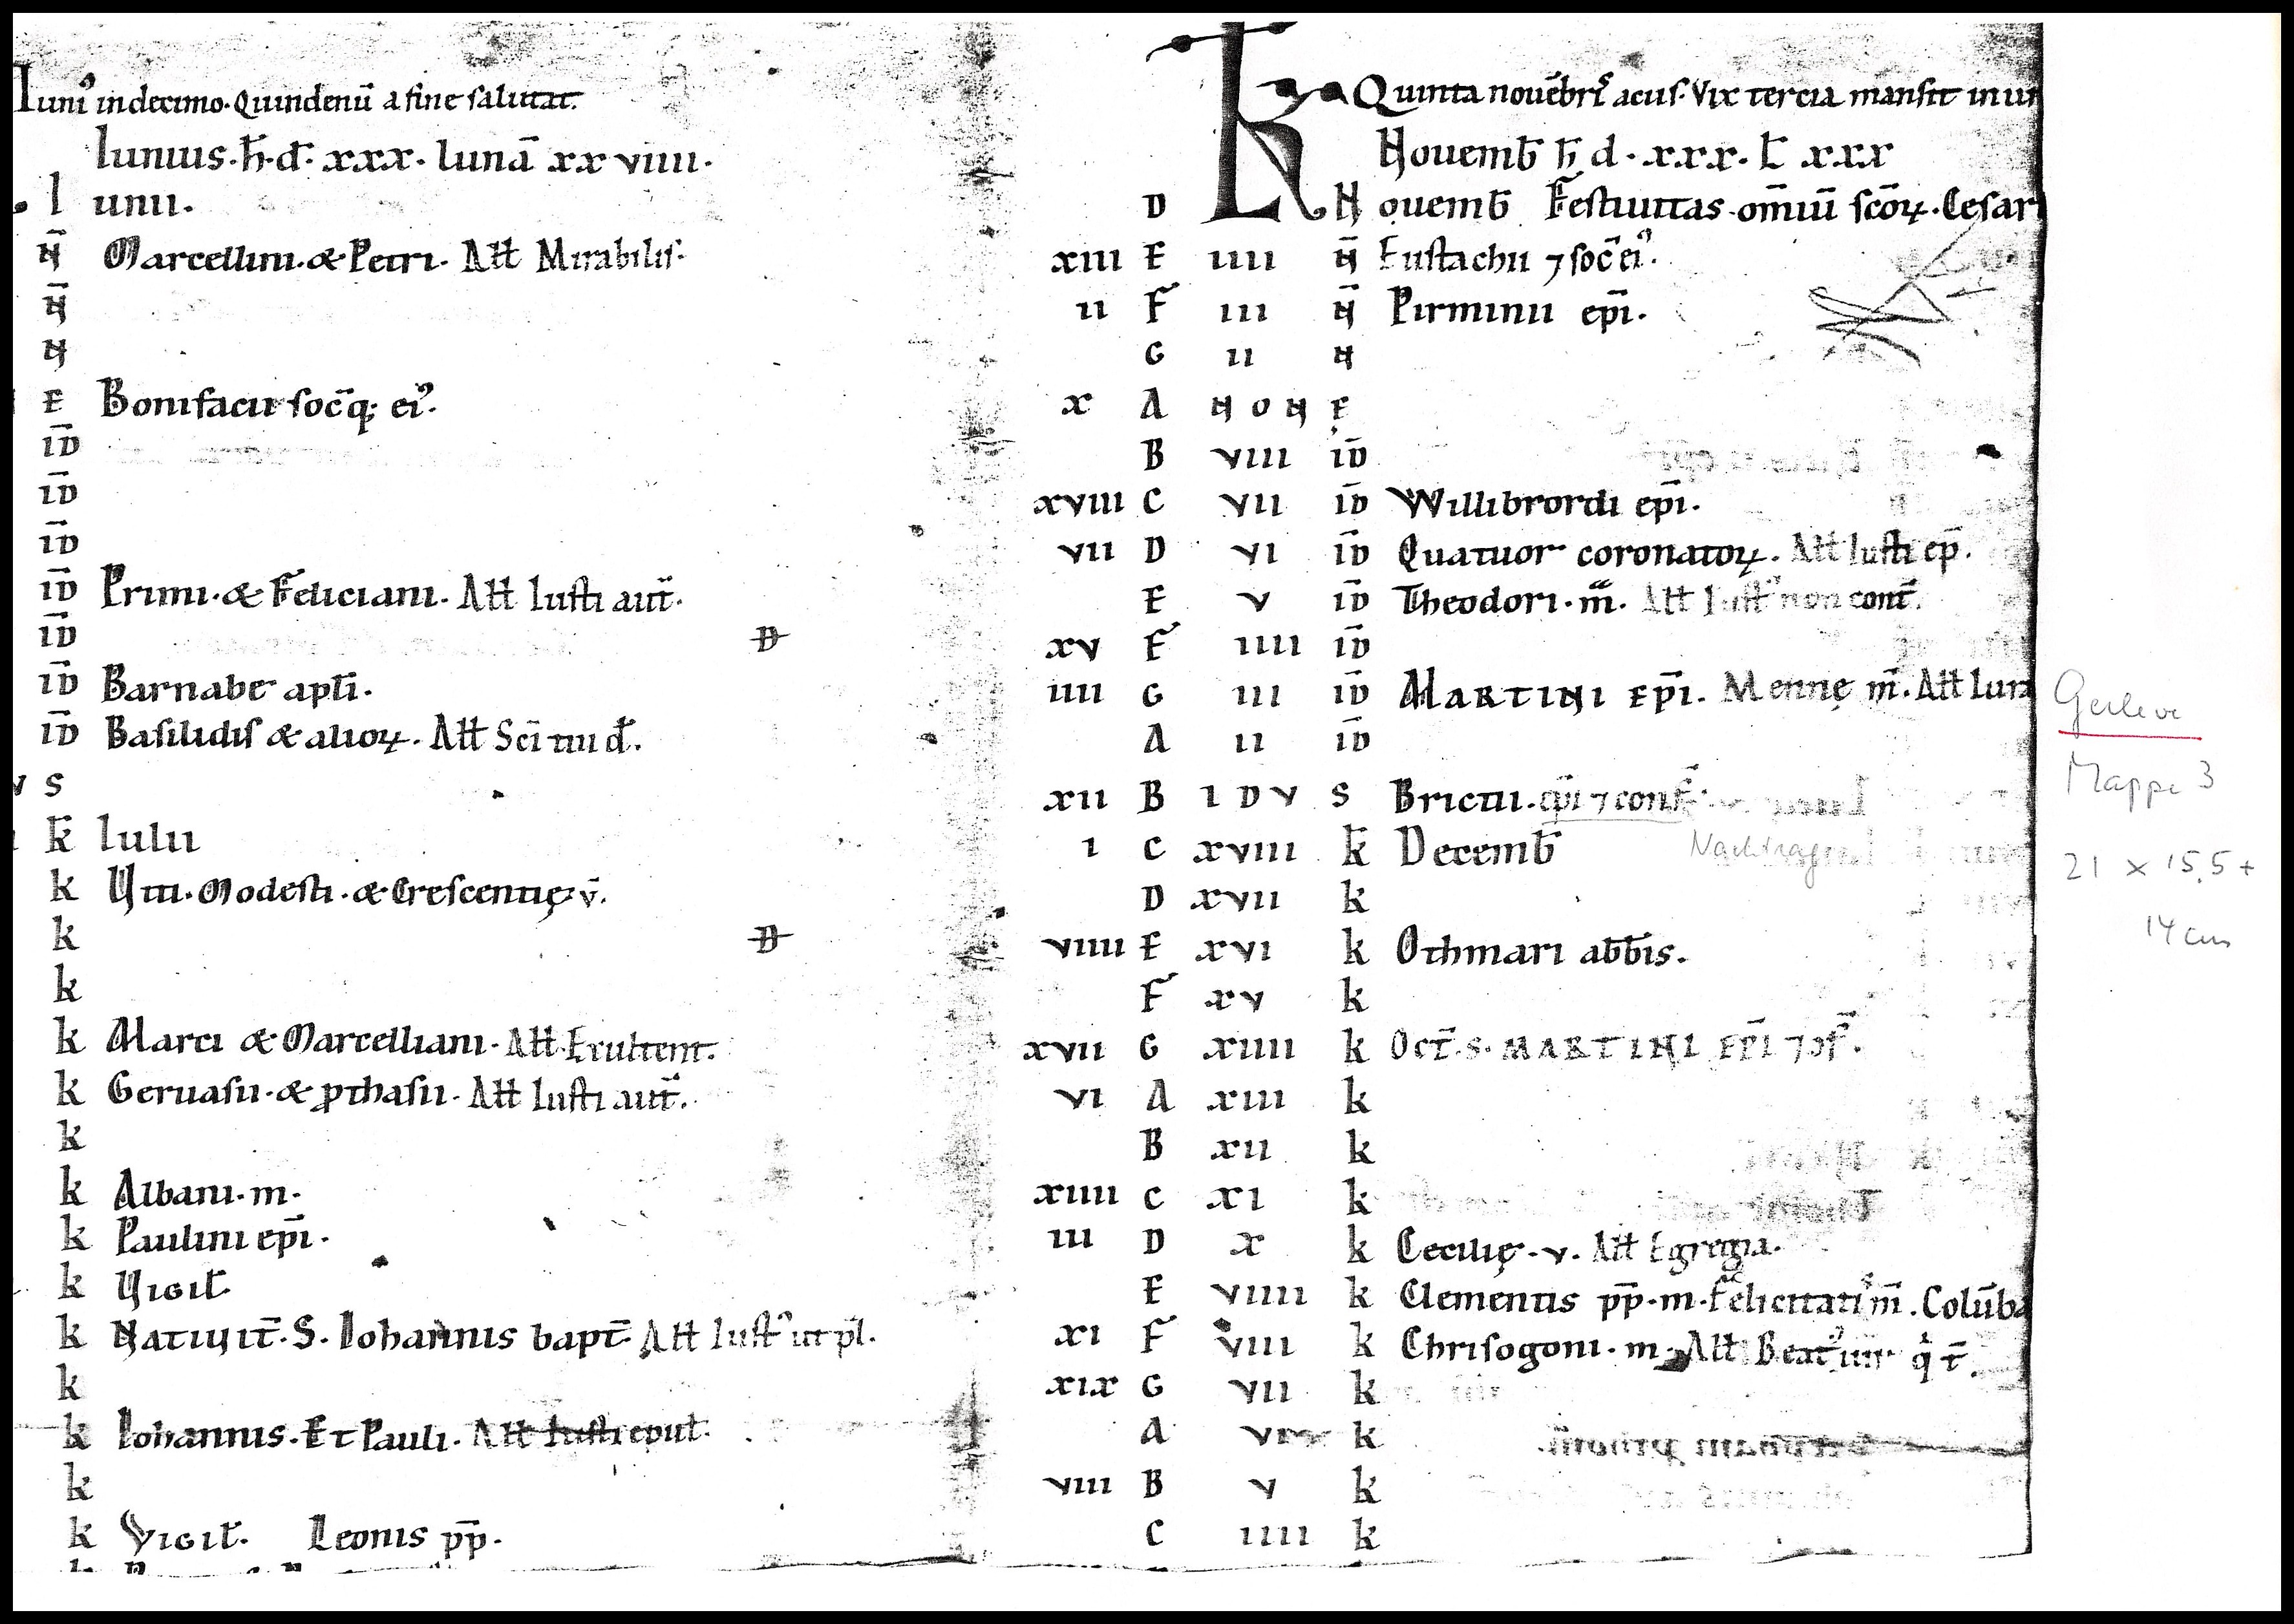 Iuni᷒ in decimo. Quindenū a fine salutat.
Iunius. h̄. d. xxx. lunā xxviiii.
l unii.
N̄ Marcellini. & Petri. Aƚƚ Mirabilis.
N̄
N
E Bonifacii soc̄q; ei᷒.
ID̄
ID̄
ID̄
ID̄ Primi. & Feliciani. Aƚƚ Iusti aut̄.
ID̄ D
ID̄ Barnabe apƚi.
ID̄ Basilidis & alioꝝ. Aƚƚ Sc̄i tui d̄.
V S
k̄ Iulii
k Viti. Modesti. & Crescentię v̄.
k D
k
k Marci & Marcelliani. Aƚƚ Exultent.
k Geruasii. & ꝓthasii. Aƚƚ Iusti aut̄.
k
k Albani. m.
k Paulini ep̄i.
k Vigiƚ
k Natiuit̄. S. Iohannis bapt̄ Aƚƚ Iust᷒ ut pƚ.
k
k Iohannis. Et Pauli. Aƚƚ Iusti epul.
k
k Vigiƚ. Leonis pp̄.
KL Quinta nouēbr̄ acus. Vix tercia mansit in ur
Nouemb̄ h̄ d. xxx. L̄ xxx
D N ouemb̄ Festiuitas om̄iū sc̄oꝝ. Cesar
xiii E iiii N̄ Eustachii ⁊ soc̄ ei᷒.
ii F iii N̄ Pirminii ep̄i.
G ii N
x A N O N E
B viii ID̄
xviii C vii ID̄ Willibrordi ep̄i.
vii D vi ID̄ Quatuor coronatoꝝ. Aƚƚ Iusti ep̄.
E v ID̄ Theodori. m̄. Aƚƚ Iust᷒ non cont̄.
xv F iiii ID̄
iiii G iii ID̄ MARTINI EP̄I. Mennę m̄. Aƚƚ Iura
A ii ID̄
xii B I D V S Brictii. ep̄i ⁊ conf̄.
i C xviii k̄ Decemb̄ Nachtrag
D xvii k
viiii E xvi k Othmari abb̄is.
F xv k
xvii G xiiii k Oct̄. S. MARTINI EP̄I ⁊ ↄf̄.
vi A xiii k
B xii k
xiiii C xi k
iii D x k Cecilię. v. Aƚƚ Egregia.
E viiii k Clementis pp̄. m. Felicitatis m̄. Colūba
xi F viii k Chrisogoni. m. Aƚƚ Beat᷒ uir q̇ t̄.
xix G vii k
A vi k
viii B v k
C iiii k
Gerleve
Mappe 3
21 x 15,5 +
14 cm